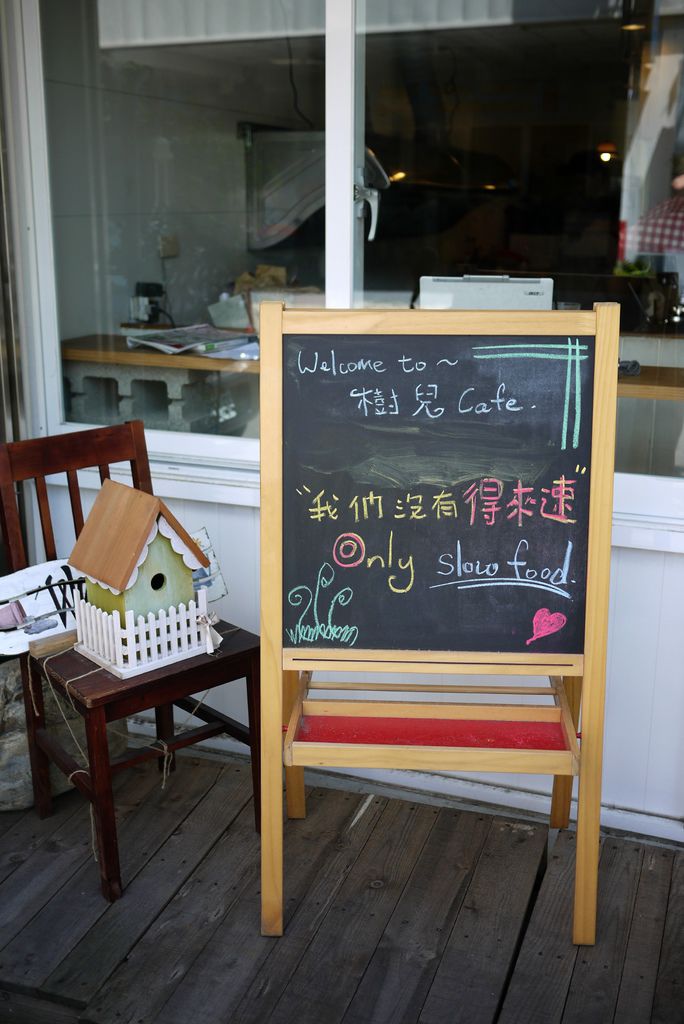 Welcome to ~
樹兒 Cafe.
"我們沒有得來速"
Only slow food.